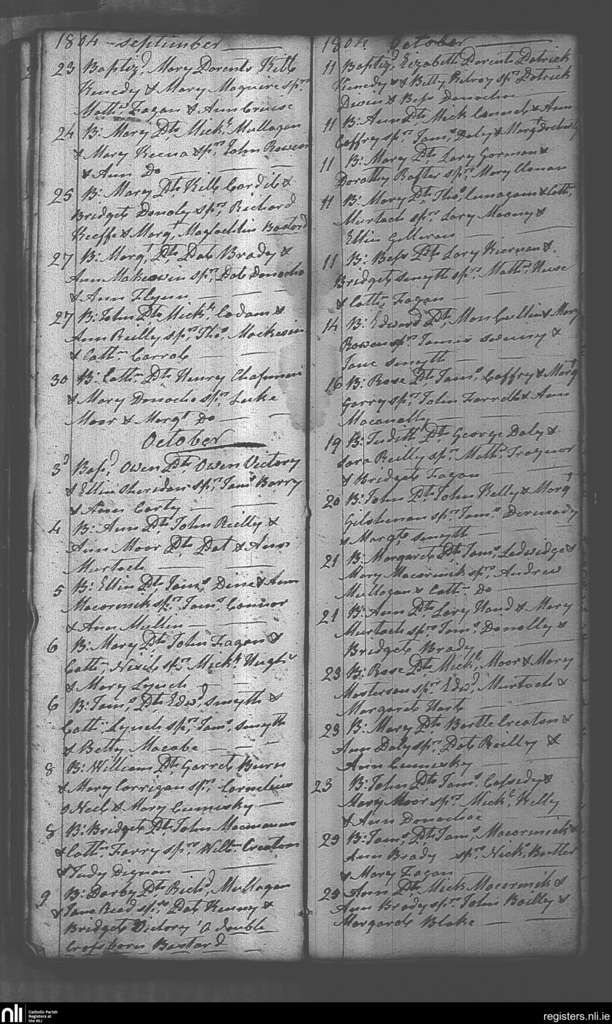 1804 - September
23 Baptizd Mary Dorents Kitt
Kenedy & Mary Maguere spr
Mattw Fagan & Ann
24 B: Mary Dtr Michl Mullagan
& Mary Keena spr John Rowan
& Ann Do
25 B: Mary Dtr Kitt &
Bridget Donoly spr Richard
Keeffe & Margt Maglochlen Bastard
27 B: Margt Dtr Pat Brady &
Ann Makewin spr Pat Donocho
& Ann Flynn
27 B: John Dtr Michl &
Ann Reilly spr Thos Mackewin
& Cathn Carrol
30 B: Cathn Dtr Henry Chapman
& Mary Donocho spr Luke
Moor & Margt Do
October
3d Bapd Owen Dtr Owen Victory
& Ellin Sheridan spr Jams Barry
& Ann Carty
4 B: Ann Dtr John Reilly &
Ann Moor Dtr Pat & Ann
Murtoch
5 B: Ellin Dtr Jams Dine & Ann
Macormick spr Jams Connor
& Ann Mullin
6 B: Mary Dtr John Fagan &
Cathn spr Michl Hughs
& Mary Lynch
6 B: Jams Dtr Edwd Smyth &
Cathn Lynch spr Jams Smyth
& Betty Macabe
8 B: William Dtr Garret Burn
& Mary Corrigan spr Cornelius
O Neil & Mary Cumisky
8 B: Bridget Dtr John Macmanus
& Cathn Farry spr Willm Creaton
& Judy Dignan
9 B: Darby Dtr Richd Mullagan
& Jane Read spr Pat Kenny &
Bridget Victory A double
Crossborn Bastard
1804 October
11 Baptizd Elizabeth Dorents Patrick
Kenedy & Betty spr Patrick
Owens & Bess Donocho
11 B: Ann Dtr Mick & Ann
Caffry spr Jams Daly & Margt
11 B: Mary Dtr Lary Gorman &
Dorothy Rafter spr Mary
11 B: Mary Dtr Thos Lunagan & Cathn
Murtoch spr Lary Moony &
Ellin
11 B: Bess Dtr Lary Kiernan &
Bridget Smyth spr Mattw
& Cathn Fagan
14 B: Edward Dtr Cullin & Mary
Rowan spr James Sweeny &
Jane Smyth
16 B: Rose Dtr Jams Caffry & Margt
Garry spr John Farrell & Ann
Macanally
19 B: Judith Dtr George Daly &
Sara Reilly spr Mattw Traynor
& Bridget Fagan
20 B: John Dtr John Kelly & Margt
Gilshenan spr Jams Dermody
& Margt Smyth
21 B: Margaret Dtr Jams Ledwedge &
Mary Macormick spr Andrew
Mullagan & Cathn Do
21 B: Ann Dtr Lary Hand & Mary
Murtoch spr Jams Donolly &
Bridget Brady
23 B: Rose Dtr Michl Moor & Mary
Masterson spr Edwd Murtoch &
Margaret Hart
23 B: Mary Dtr Bartle Creaton &
Ann Daly spr Pat Reilly &
Ann Cumisky
23 B: John Dtr Jams Casedy &
Mary Moor spr Michl Kelly
& Ann Donochoe
29 B: Jams Dtr Jams Macormick &
Ann Brady spr Nick Butler
& Mary Fagan
29 Ann Dtr Mick Macormick &
Ann Brady spr John Reilly &
Margaret Blake
nli
Catholic Parish
Registers at
the NLI
registers.nli.ie